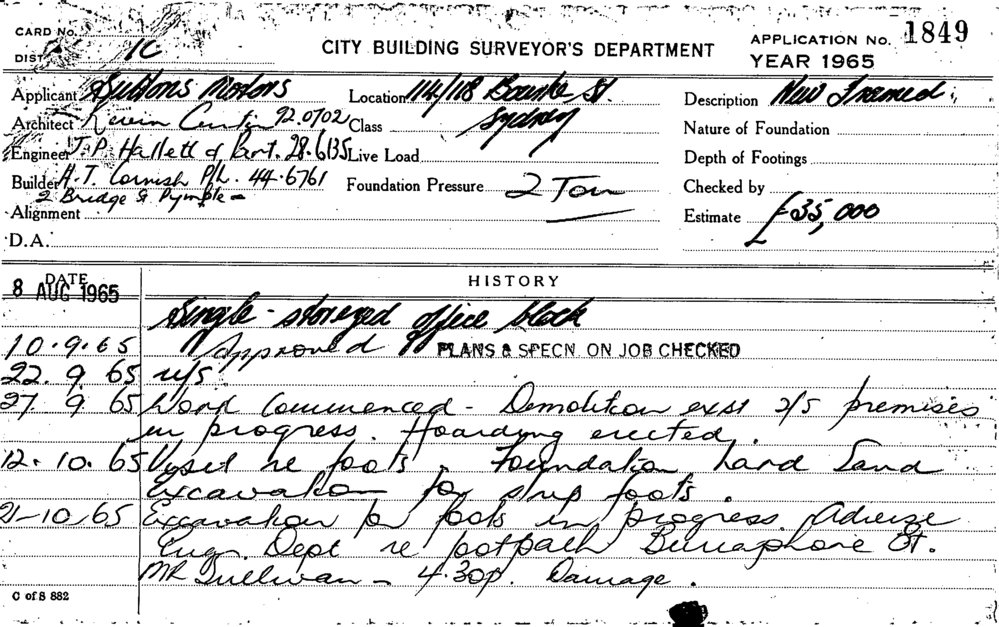 CARD No.
DIST. 1C
CITY BUILDING SURVEYOR'S DEPARTMENT
APPLICATION No. 1849
YEAR 1965
Applicant Suttons Motors
Location 114/118 Bourke St.
Sydney
Description New Framed
Architect Kevin Curtin 92.0702
Class
Nature of Foundation
Engineer J. P. Hallett & Part. 28.6135
Live Load
Depth of Footings
Builder H. T. Cornish P/L. 44.6761
2 Bridge St Pymble -
Foundation Pressure 2 Ton
Checked by
Alignment
Estimate £35,000
D.A.
DATE
HISTORY
8 AUG 1965
Single-storeyed office block
10.9.65 Approved PLANS & SPECN. ON JOB CHECKED
22.9.65 n/s
27.9.65 Work Commenced - Demolition exst 2/S premises
in progress. Hoarding erected.
12.10.65 Visit re foots. Foundation hard Sand
Excavation for strip foots.
21-10-65 Excavation for foots in progress. Advise
Engr. Dept re footpath Burraphore St.
MR Sullivan - 4.30p. Damage.
C of S 882